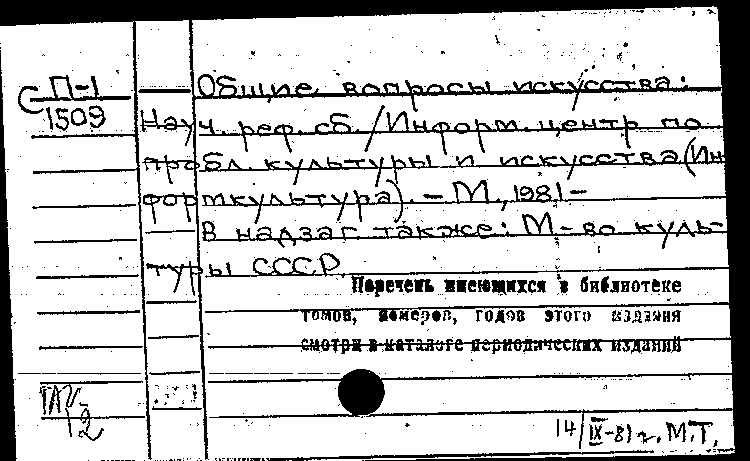 С П-1
1509
Общие вопросы искусства:
Науч. реф. сб. / Информ. центр по
пробл. культуры и искусства (Ин
формкультура). – М., 1981 –
В надзаг. также: М-во куль-
туры СССР.
Перечень имеющихся в библиотеке
томов, номеров, годов этого издания
смотри в каталоге периодических изданий
12
14/IX-81 г. М.Т.